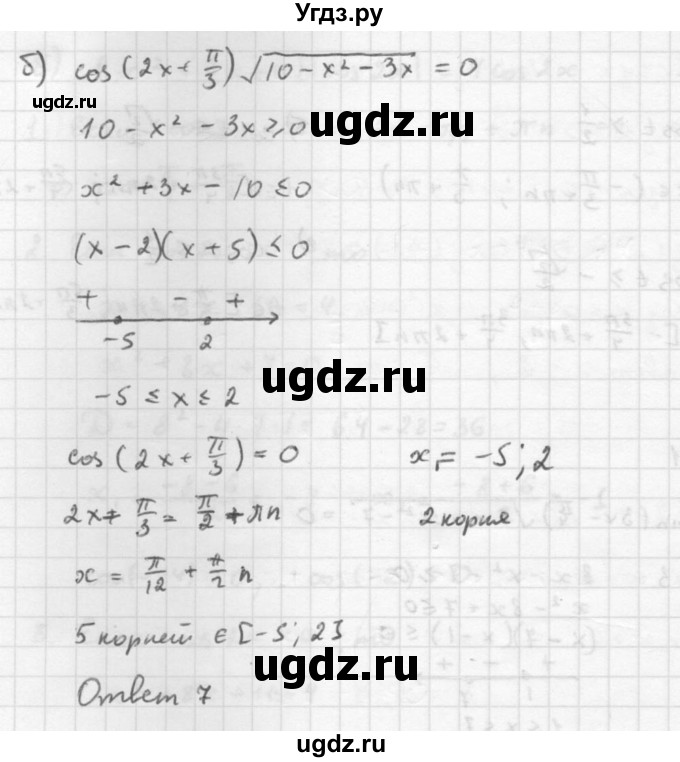 Угдз.ру
б) cos(2x + π/3)√(10 - x² - 3x) = 0
ugdz.ru
10 - x² - 3x ≥ 0
ugdz.ru
x² + 3x - 10 ≤ 0
(x - 2)(x + 5) ≤ 0
+ - +
-5 2
ugdz.ru
-5 ≤ x ≤ 2
cos(2x + π/3) = 0 x₁ = -5; 2
2x + π/3 = π/2 + πn 2 корня
ugdz.ru
x = π/12 + π/2 n
5 корней ∈ [-5; 2]
ugdz.ru
Ответ 7
ugdz.ru